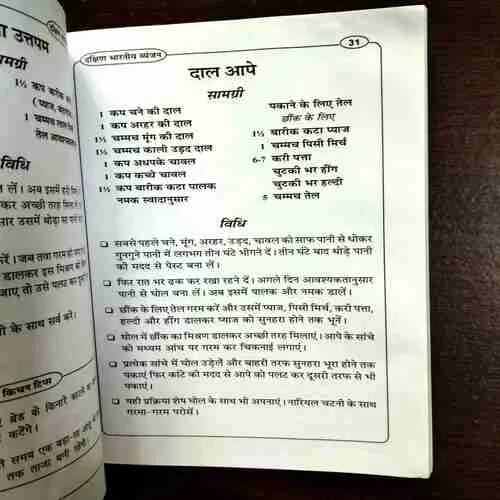 उत्तपम
सामग्री
विधि
के साथ सर्व करें।
किचन टिप्स
दक्षिण भारतीय व्यंजन
31
दाल आपे
सामग्री
1 कप चने की दाल
1 कप अरहर की दाल
1½ चम्मच मूंग की दाल
1½ चम्मच काली उड़द दाल
1 कप अधपके चावल
1 कप कच्चे चावल
1½ कप बारीक कटा पालक
नमक स्वादानुसार
पकाने के लिए तेल
छौंक के लिए
1½ बारीक कटा प्याज
1 चम्मच पिसी मिर्च
6-7 करी पत्ता
चुटकी भर हींग
चुटकी भर हल्दी
5 चम्मच तेल
विधि
❑ सबसे पहले चने, मूंग, अरहर, उड़द, चावल को साफ पानी से धोकर
गुनगुने पानी में लगभग तीन घंटे भीगने दें। तीन घंटे बाद थोड़े पानी
की मदद से पेस्ट बना लें।
❑ फिर रात भर ढक कर रखा रहने दें। अगले दिन आवश्यकतानुसार
पानी से घोल बना लें। अब इसमें पालक और नमक डालें।
❑ छौंक के लिए तेल गरम करें और उसमें प्याज, पिसी मिर्च, करी पत्ता,
हल्दी और हींग डालकर प्याज को सुनहरा होने तक भूनें।
❑ घोल में छौंक का मिश्रण डालकर अच्छी तरह मिलाएं। आपे के सांचे
को मध्यम आंच पर गरम कर चिकनाई लगाएं।
❑ प्रत्येक सांचे में घोल उड़ेलें और बाहरी तरफ सुनहरा भूरा होने तक
पकाएं फिर कांटे की मदद से आपे को पलट कर दूसरी तरफ से भी
पकाएं।
❑ यही प्रक्रिया शेष घोल के साथ भी अपनाएं। नारियल चटनी के साथ
गरमा-गरम परोसें।